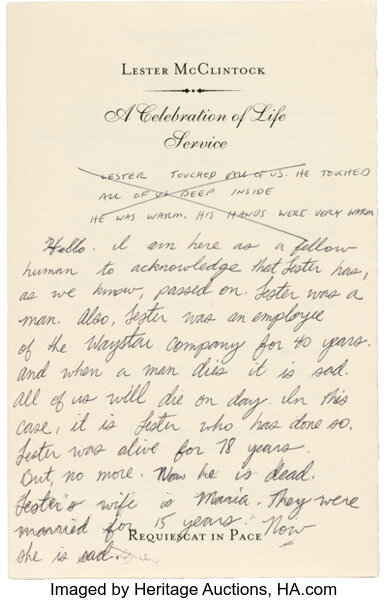 LESTER McCLINTOCK
A Celebration of Life
Service
LESTER TOUCHED ALL OF US. HE TOUCHED
ALL OF US DEEP INSIDE
HE WAS WARM. HIS HANDS WERE VERY WARM
Hello. I am here as a fellow
human to acknowledge that Lester has,
as we know, passed on. Lester was a
man. Also, Lester was an employee
of the Waystar Company for 40 years.
and when a man dies it is sad.
All of us will die on day. In this
case, it is Lester who has done so.
Lester was alive for 78 years.
But, no more. Now he is dead.
Lester's wife is Maria. They were
married for 15 years. Now
REQUIESCAT IN PACE
she is sad
Imaged by Heritage Auctions, HA.com